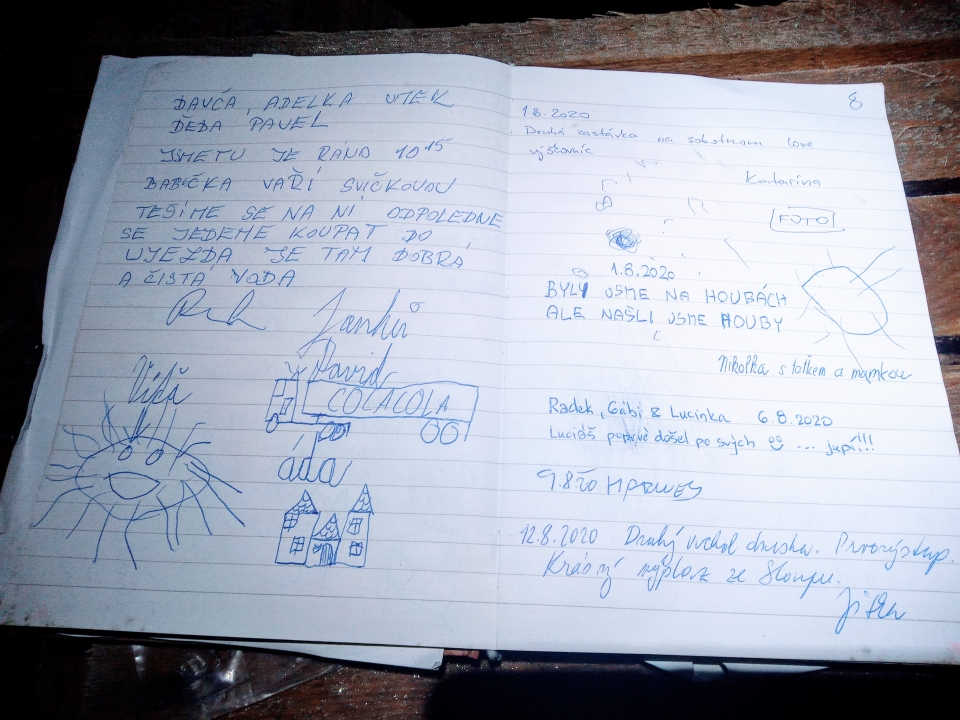 DAVČA, ADELKA VITEK
DĚDA PAVEL
JSMETU JE RÁNO 10 15
BABIČKA VAŘÍ SVÍČKOVOU
TEŠÍME SE NA NÍ ODPOLEDNE
SE JEDEME KOUPAT DO
UJEZDA JE TAM DOBRÁ
A ČISTÁ VODA
Janků
David
COLACOLA
áďa
8
1.8.2020
Druhá zastávka na sobotnom love
výškovnic
Katarína
FOTO
1.8.2020
BYLI JSME NA HOUBÁCH
ALE NAŠLI JSME HOUBY
Nikolka s taťkem a mamkou
Radek, Gábi & Lucinka 6.8.2020
Luciáš poprvé došel po svých ... jupí!!!
9.8.20
12.8.2020 Druhý vrchol dneska. Prvovýstup.
Krásný výplaz ze Sloupu.
Jitka